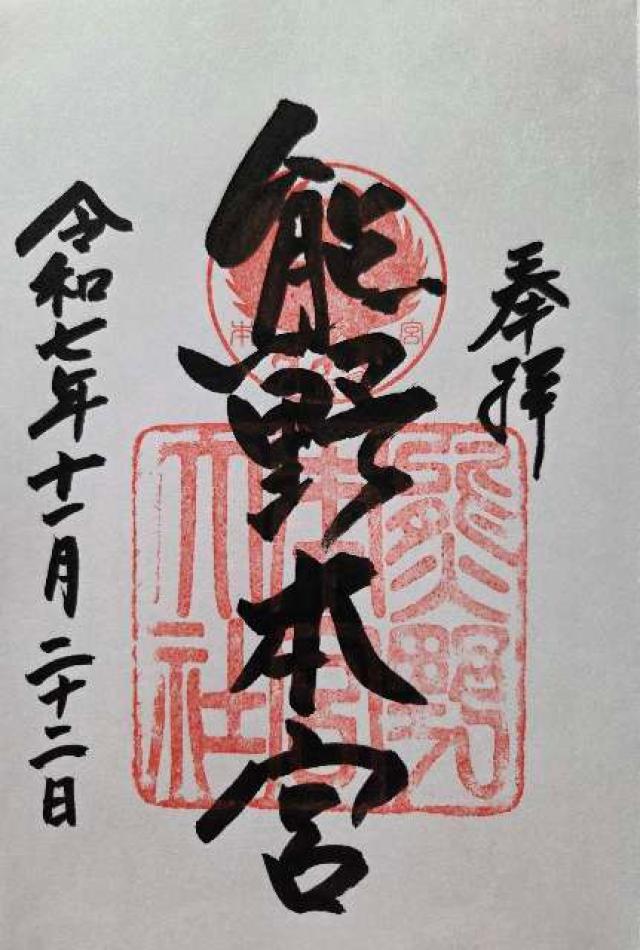 奉拝
熊野本宮
令和七年十一月二十二日
熊野
本宮
大社
本 宮